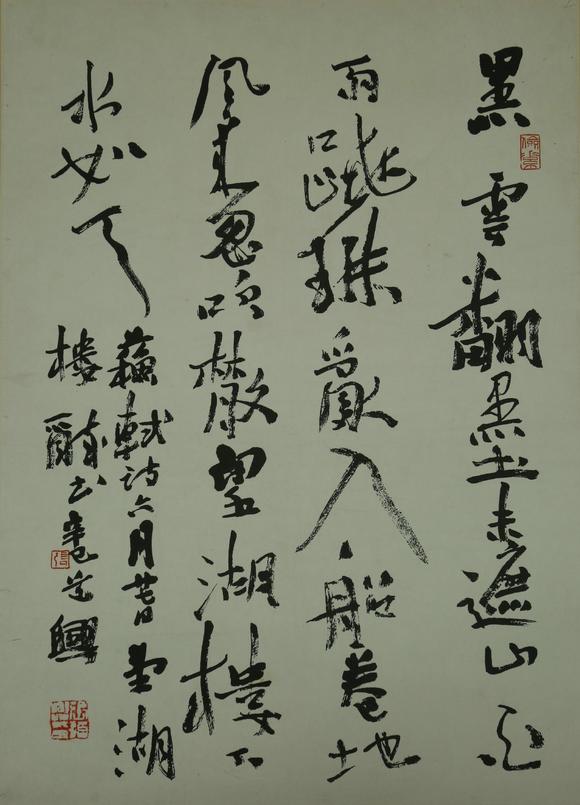 黑雲翻墨未遮山白
雨跳珠亂入船卷地
風來忽吹散望湖樓下
水如天
蘇軾詩六月廿七日望湖
樓醉書
張